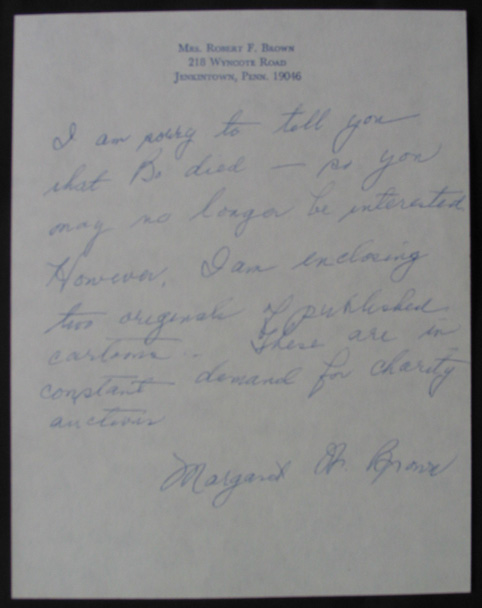 Mrs. Robert F. Brown
218 Wyncote Road
Jenkintown, Penn. 19046
I am sorry to tell you
that Bo died — so you
may no longer be interested
However, I am enclosing
two originals of published
cartoons. These are in
constant demand for charity
auctions
Margaret Brown